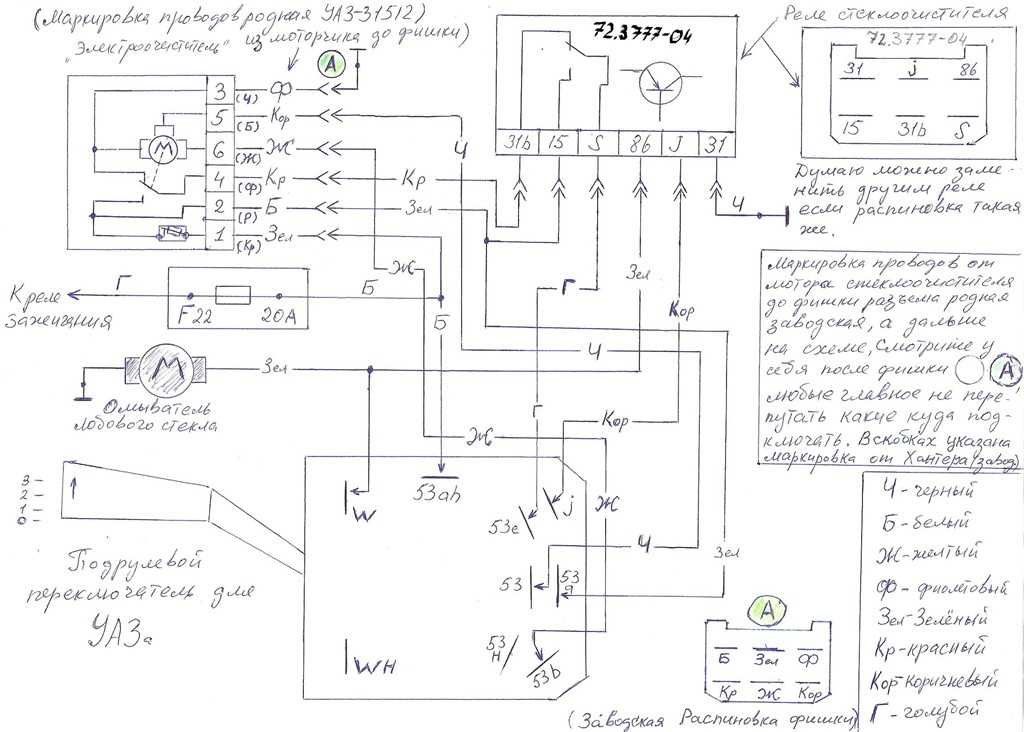 (Маркировка проводов родная УАЗ-31512)
"Электроочиститель" из моторчика до фишки)
A
3 (Ч) Ф
5 (Б) Кор
6 (Ж) Ж
4 (Ф) Кр
2 (Р) Б
1 (Кр) Зел
М
Ч
Кр
Зел
72.3777-04
31b 15 S 86 J 31
Реле стеклоочистителя
72.3777-04
31 j 86
15 31b S
Думаю можно заме-
нить другим реле
если распиновка такая
же.
Ч
Зел
Кор
Г
Ж
Б
К реле
зажигания
Г
F22 20А
Б
М
Зел
Омыватель
лобового стекла
Ч
Г
Кор
Ж
Маркировка проводов от
мотора стеклоочистителя
до фишки разъема родная
заводская, а дальше
на схеме, смотрите у
себя после фишки A
любые главное не пере-
путать какие куда под-
ключать. В скобках указана
маркировка от Хантера (завод)
3
2
1
0
Подрулевой
переключатель для
УАЗа
W
53ah
53e
j
Ж
Ч
Зел
53
53a
53H
53b
WH
A
Б Зел Ф
Кр Ж Кор
(Заводская Распиновка фишки)
Ч-черный
Б-белый
Ж-желтый
Ф-фиолетовый
Зел-Зелёный
Кр-красный
Кор-коричневый
Г-голубой